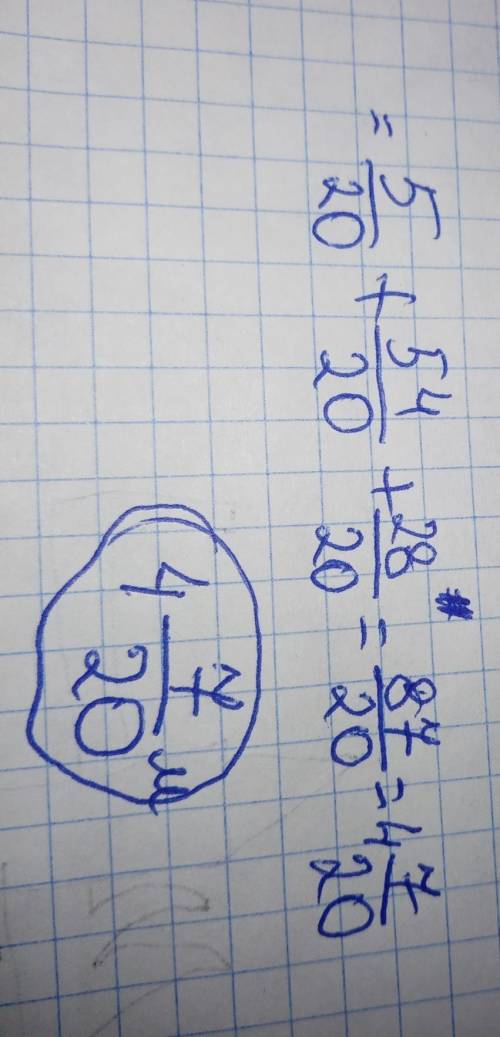 = 5/20 + 54/20 + 28/20 = 87/20 = 4 7/20
4 7/20 м